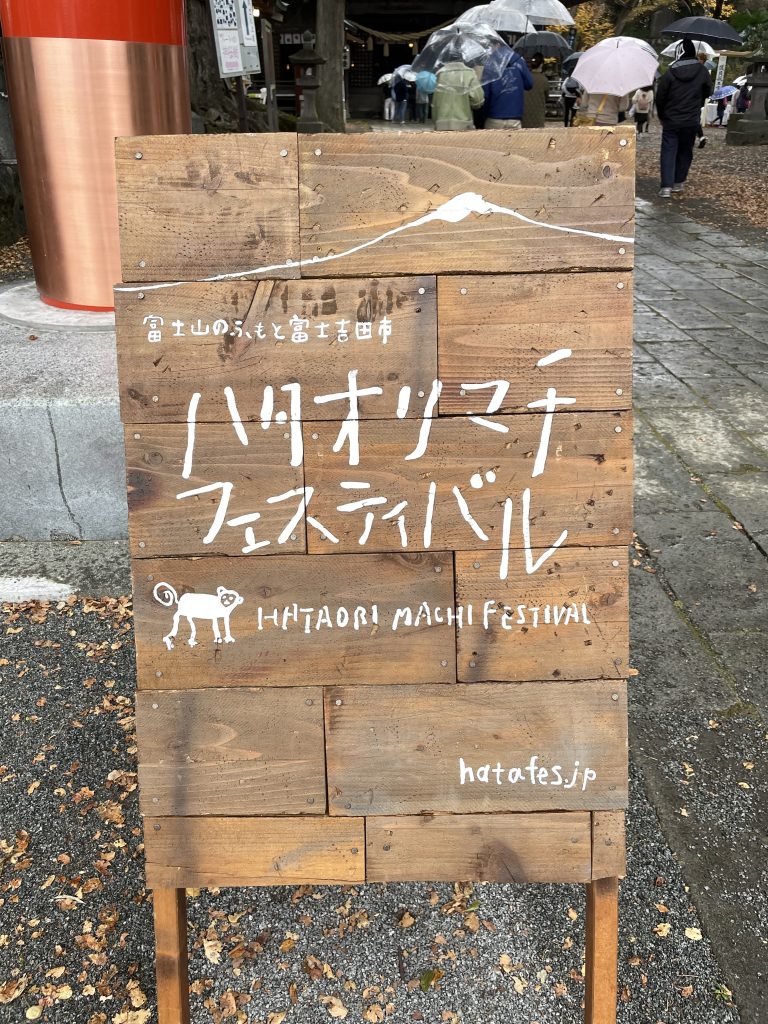 富士山のふもと富士吉田市
ハタオリマチ
フェスティバル
HATAORI MACHI FESTIVAL
hatafes.jp